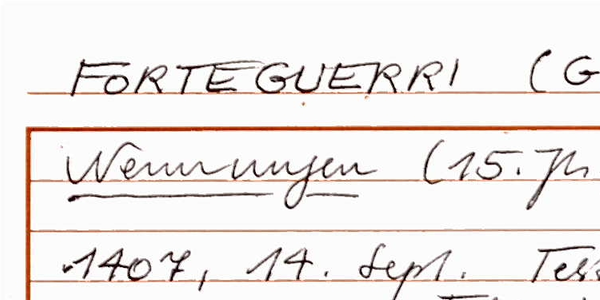 FORTEGUERRI (G
Nennungen (15. Jh
1407, 14. Sept. Tes